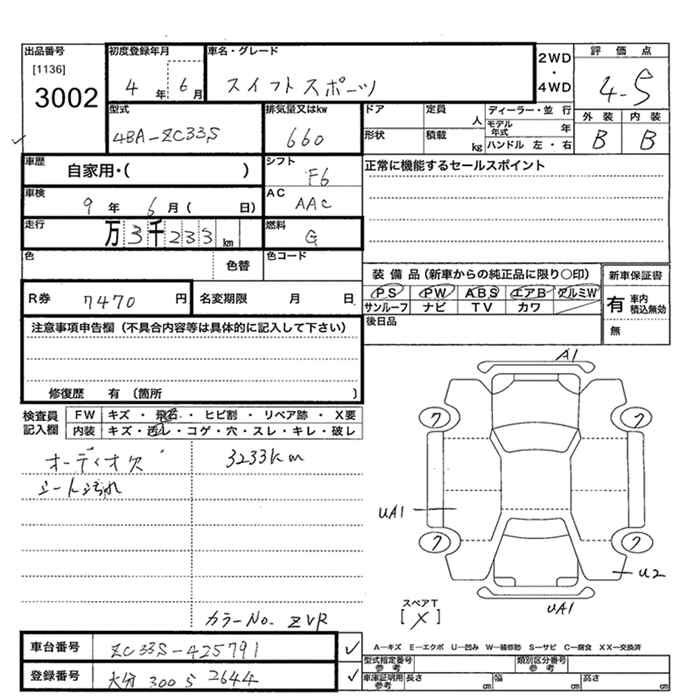 出品番号 初度登録年月 車名・グレード 2WD ・ 4WD 評価点
[1136]
3002 4 年 6 月 スイフトスポーツ 4-5
型式 排気量又はkw ドア 定員 人 ディーラー・並行 外装 内装
4BA-ZC33S 660 形状 積載 kg モデル年式 年 B B
ハンドル 左・右
車歴 自家用・( ) シフト F6 正常に機能するセールスポイント
車検 9 年 6 月( 日) AC AAC
走行 万 3 千 2 3 3 km 燃料 G
色 色替 色コード
装備品(新車からの純正品に限り○印) 新車保証書
R券 7470 円 名変期限 月 日 PS PW ABS エアB アルミW 有 車内積込無効
サンルーフ ナビ TV カワ 無
注意事項申告欄(不具合内容等は具体的に記入して下さい) 後日品
修復歴 有(箇所 )
A1
検査員記入欄 FW キズ・飛石・ヒビ割・リペア跡・X要
内装 キズ・汚レ・コゲ・穴・スレ・キレ・破レ
7 7
オーディオ欠 3233km
シート汚れ
UA1
7 7
U2
スペアT
[X] UA1
カラーNo. ZVR
A-キズ E-エクボ U-凹み W-補修跡 S-サビ C-腐食 XX-交換済
車台番号 ZC33S-425791 ✓ 型式指定番号 参考 類別区分番号 参考
登録番号 大分 300 S 2644 ✓ 車庫証明用 参考 長さ cm 幅 cm 高さ cm